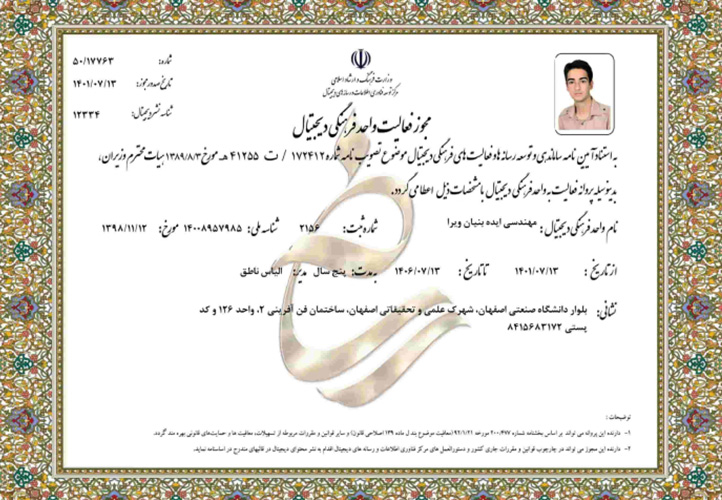 شماره: ۵۰/۱۷۷۶۳
تاریخ صدور مجوز: ۱۴۰۱/۰۷/۱۳
شناسه نشر دیجیتال: ۱۲۳۳۴
وزارت فرهنگ و ارشاد اسلامی
مرکز توسعه فناوری اطلاعات و رسانه‌های دیجیتال
مجوز فعالیت واحد فرهنگی دیجیتال
به استناد آیین نامه ساماندهی و توسعه رسانه ها و فعالیت های فرهنگی دیجیتال موضوع تصویب نامه شماره ۱۷۲۴۱۲ / ت ۴۱۲۵۵ هـ مورخ ۱۳۸۹/۸/۳ هیات محترم وزیران،
بدینوسیله پروانه فعالیت به واحد فرهنگی دیجیتال با مشخصات ذیل اعطا می گردد.
نام واحد فرهنگی دیجیتال: مهندسی ایده بنیان ویرا شماره ثبت: ۲۱۵۶ شناسه ملی: ۱۴۰۰۸۹۵۷۹۸۵ مورخ: ۱۳۹۸/۱۱/۱۲
از تاریخ: ۱۴۰۱/۰۷/۱۳ تا تاریخ: ۱۴۰۶/۰۷/۱۳ به مدت: پنج سال مدیر: الیاس ناطق
نشانی: بلوار دانشگاه صنعتی اصفهان، شهرک علمی و تحقیقاتی اصفهان، ساختمان فن آفرینی ۲، واحد ۱۲۶ و کد
پستی ۸۴۱۵۶۸۳۱۷۲
توضیحات:
۱- دارنده این پروانه می تواند بر اساس بخشنامه شماره ۲۰۰/۴۷۷ مورخه ۹۲/۱/۲۱ (معافیت موضوع بند ل ماده ۱۳۹ اصلاحی قانون) و سایر قوانین و مقررات مربوطه از تسهیلات، معافیت ها و حمایت‌های قانونی بهره مند گردد.
۲- دارنده این مجوز می تواند در چارچوب قوانین و مقررات جاری کشور و دستورالعمل های مرکز فناوری اطلاعات و رسانه های دیجیتال اقدام به نشر محتوای دیجیتال در قالبهای مندرج در اساسنامه نماید.